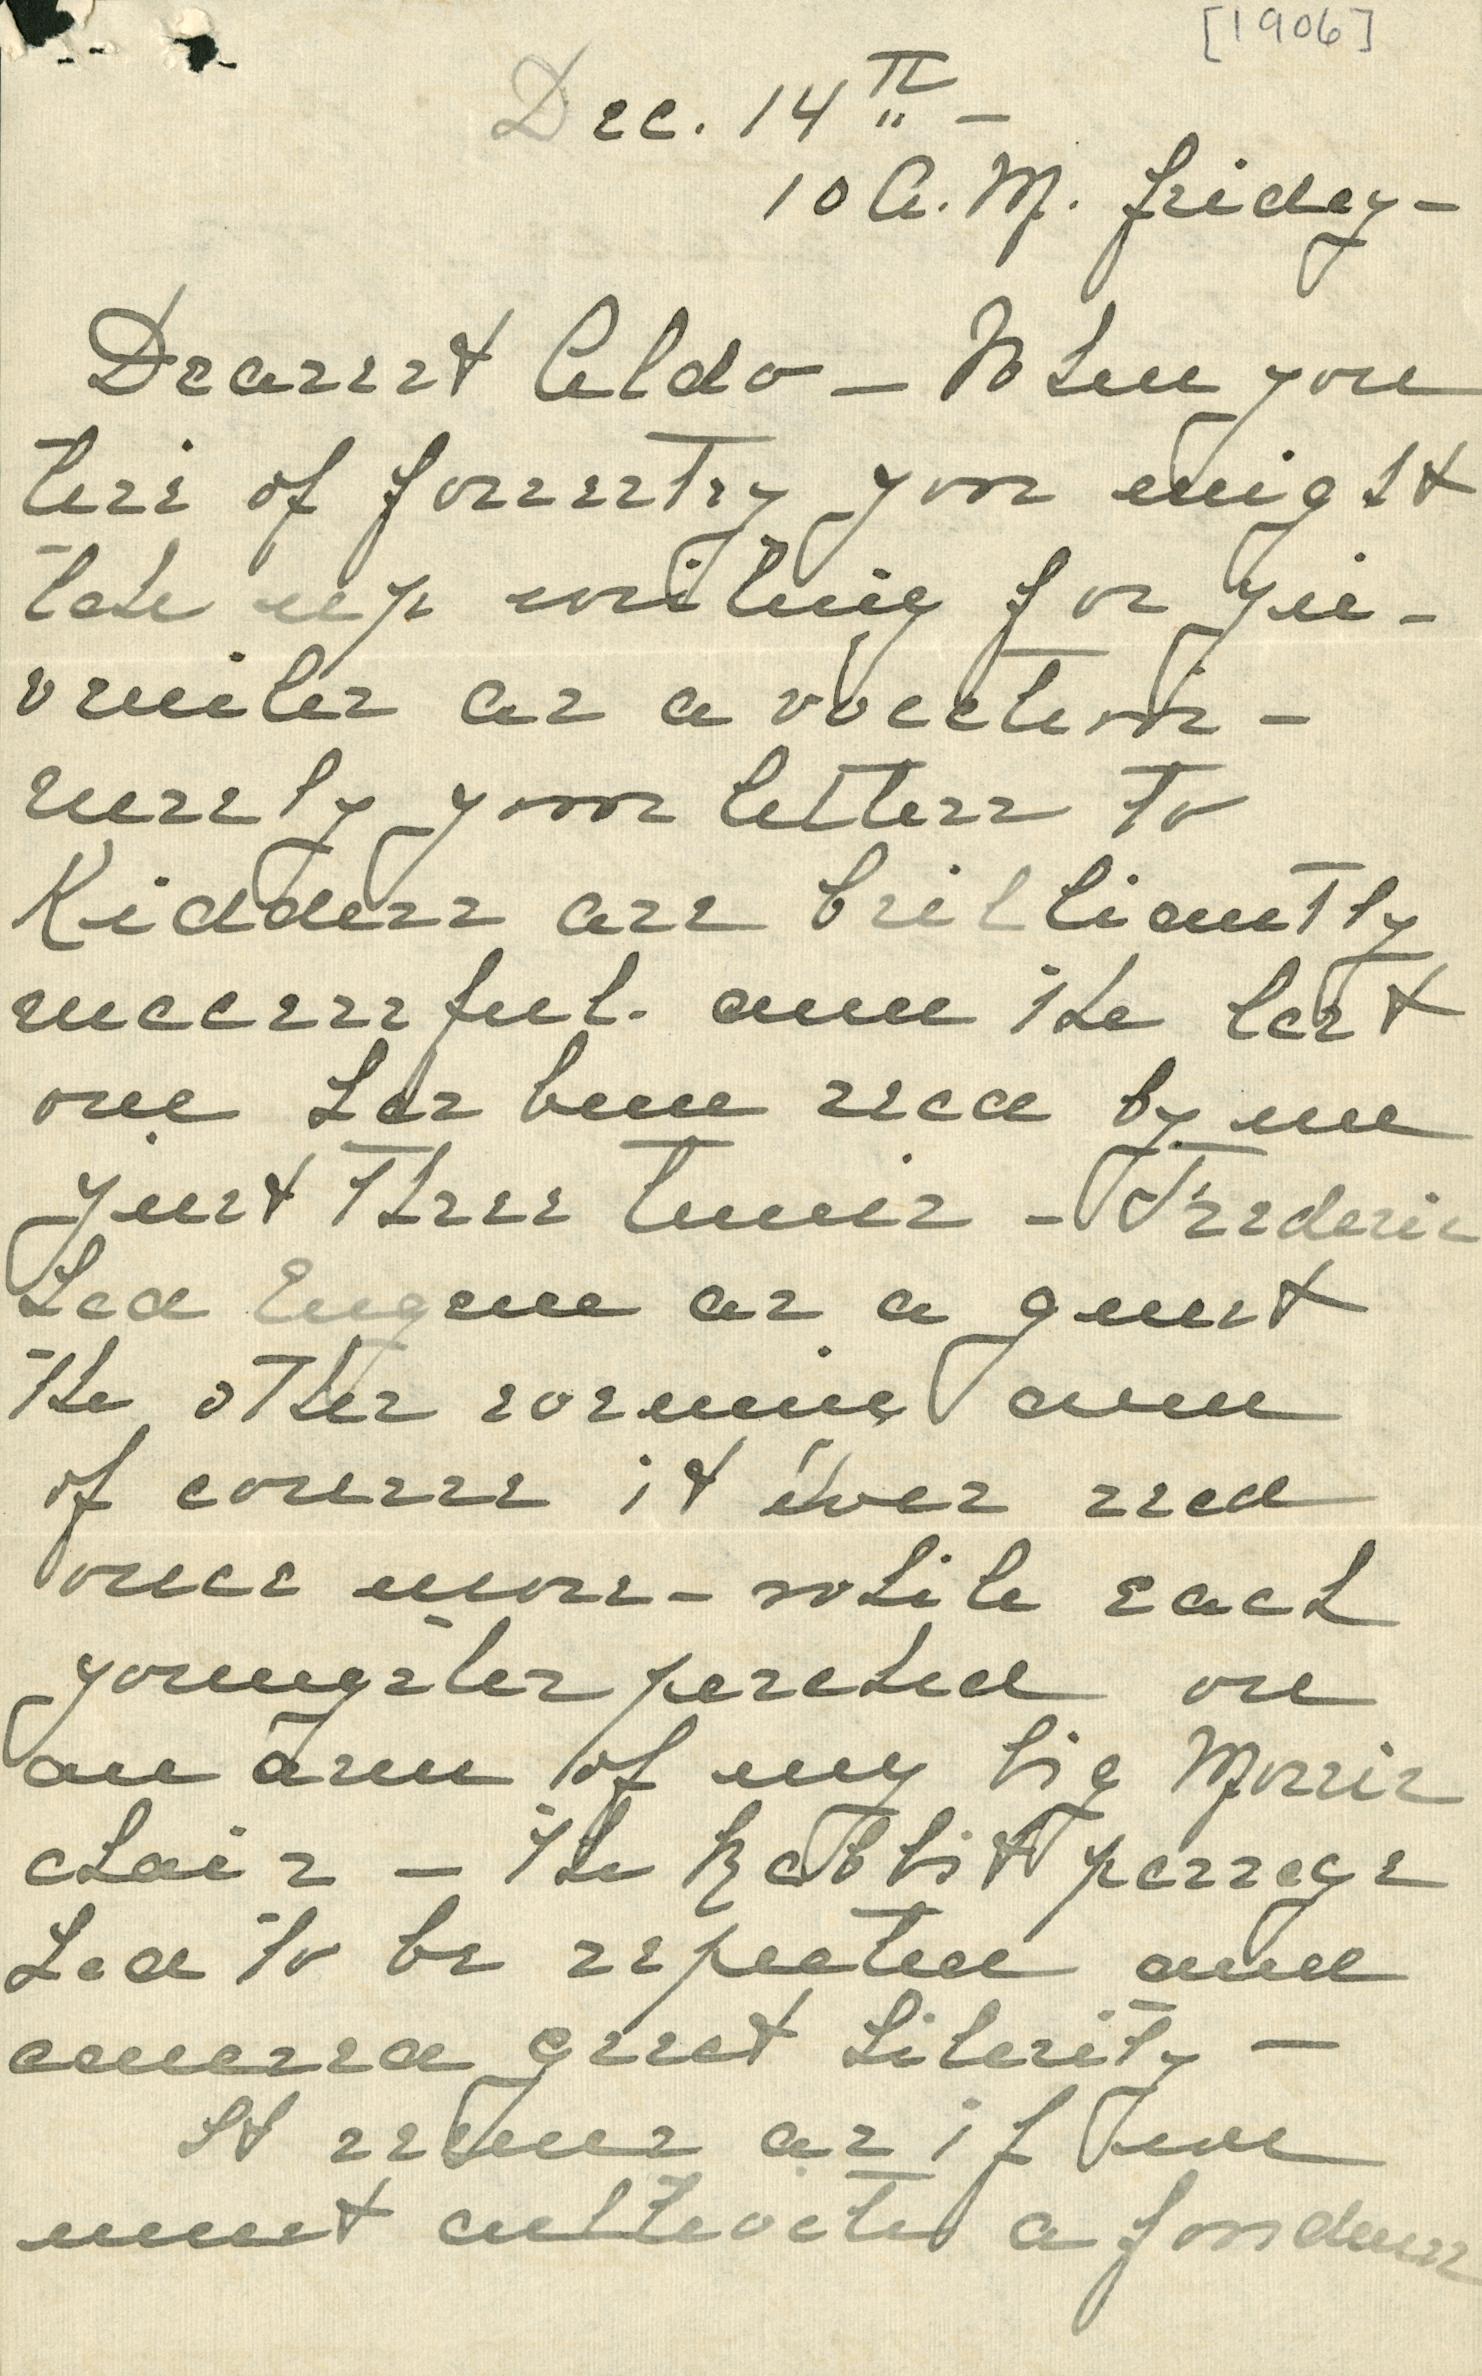 [1906]
Dec. 14th –
10 A.M. Friday –
Dearest Aldo – When you
tire of forestry you might
take up writing for ju-
veniles as a vocation –
surely your letters to
Kidderr are brilliantly
successful. and the last
one has been read by me
just three times – Frederic
had Eugene as a guest
the other evening and
of course it was read
once more – while each
youngster perched on
an arm of my big Morris
chair – the Rabbit passage
had to be repeated and
caused great hilarity –
It seems as if we
must cultivate a fondness